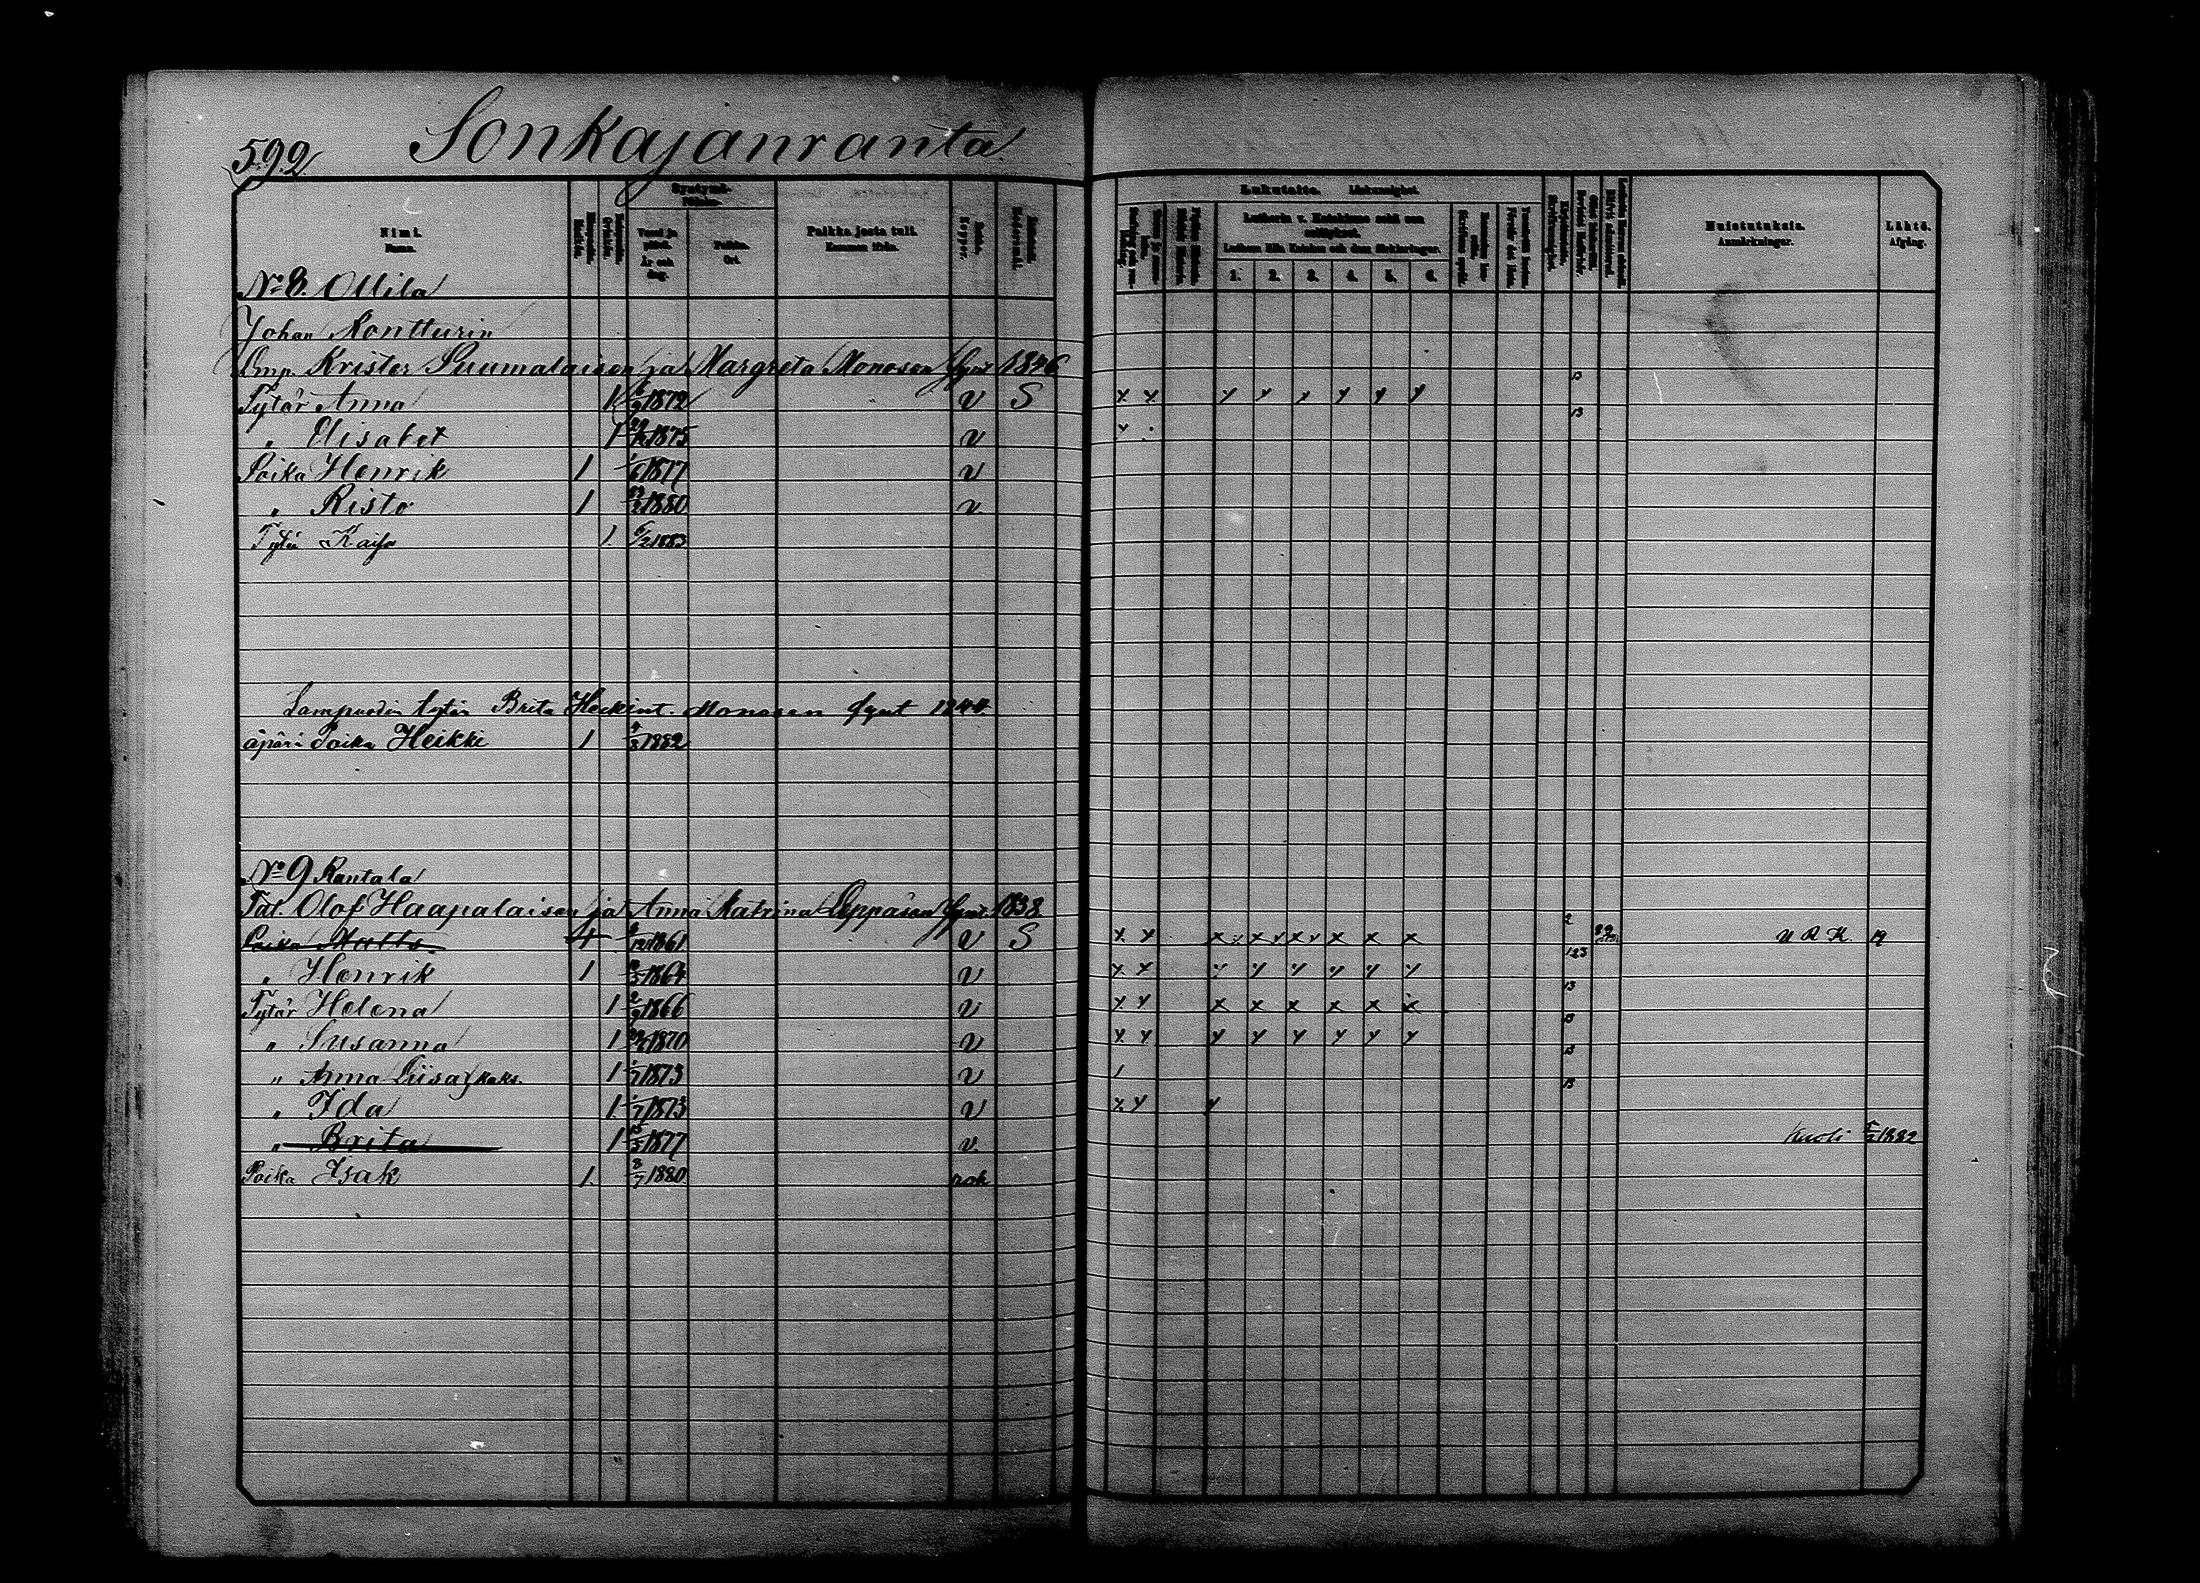 592 Sonkajanranta
Nimi. Namn.
Syntymä- Födelse-
Vuosi ja päivä. År och dag.
Paikka. Ort.
Paikka josta tuli. Kommen ifrån.
Rokko. Koppor.
Lukutaito. Läskunnighet.
1. 2. 3. 4. 5. 6.
Muistutuksia. Anmärkningar.
Lähtö. Afgång.
No 8. Ollila
Johan Kontturin
Lmp. Krister Suumalaisen ja Margreta Monosen synt 1846
Tytär Anna 1 1872 v S
" Elisabet 1 1875 v
Poika Henrik 1 1/6 1877 v
" Risto 1 1880 v
Tytär Kaisa 1. 6/2 1883
Lampuodin tytär Brita Heikint. Monosen synt 1844.
äpärä Poika Heikki 1 4/3 1882
No 9 Rantala
Tal. Olof Haapalaisen ja Anna Katrina Leppäsen synt. 1838
Poika Matts 1 1861 v S U R K. 19
" Henrik 1 1864 v
Tytär Helena 1 1866 v
" Susanna 1 1870 v
" Anna Liisa kaks. 1 1/7 1873 v
" Ida 1 1/7 1873 v
" Brita 1 1877 v. kuoli 1882
Poika Isak 1. 8/7 1880 rok